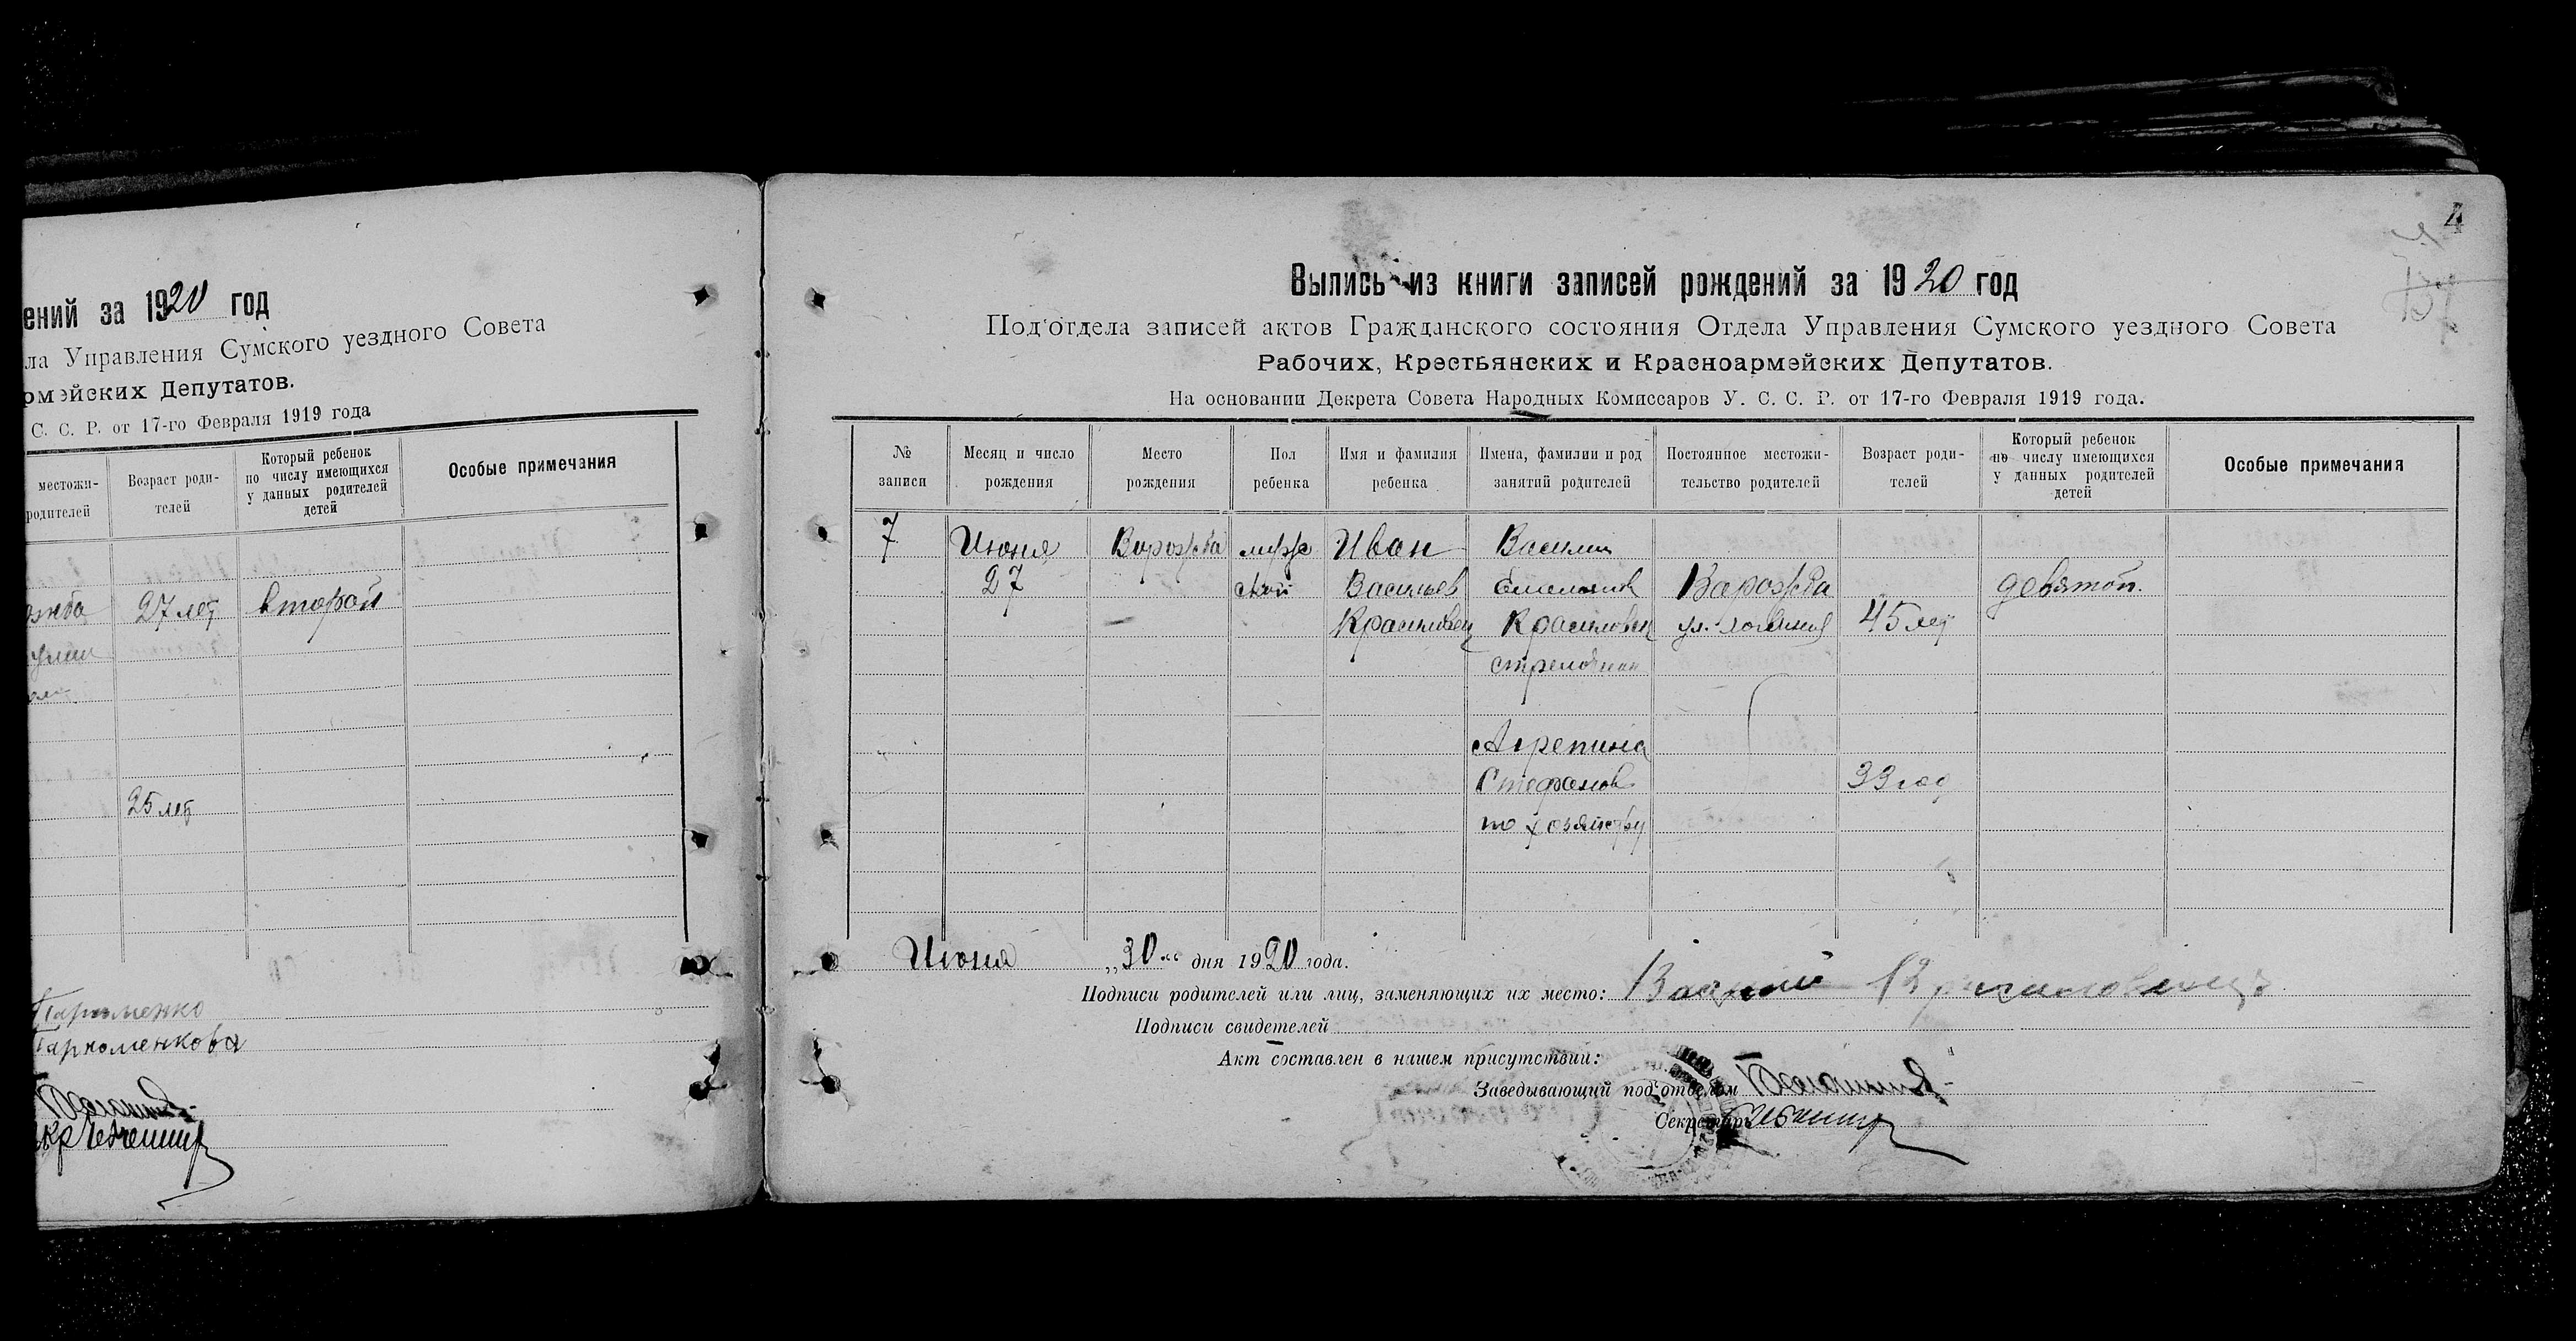 ений за 1920 год
ла Управления Сумского уездного Совета
рмейских Депутатов.
С. С. Р. от 17-го Февраля 1919 года
местожи-
родителей
Возраст роди-
телей
Который ребенок
по числу имеющихся
у данных родителей
детей
Особые примечания
27 лет
второй
25 лет
Пархоменко
Пархоменкова
4
Выпись из книги записей рождений за 1920 год
Под'отдела записей актов Гражданского состояния Отдела Управления Сумского уездного Совета
Рабочих, Крестьянских и Красноармейских Депутатов.
На основании Декрета Совета Народных Комиссаров У. С. С. Р. от 17-го Февраля 1919 года.
№
записи
Месяц и число
рождения
Место
рождения
Пол
ребенка
Имя и фамилия
ребенка
Имена, фамилии и род
занятий родителей
Постоянное местожи-
тельство родителей
Возраст роди-
телей
Который ребенок
по числу имеющихся
у данных родителей
детей
Особые примечания
7
Июня
27
Ворожба
мужс
кой
Иван
Васильев
Василий
стрелочник
Агрепина
Стефанов
по хозяйству
Ворожба
45 лет
33 год
девятой.
Июня „30“ дня 1920 года.
Подписи родителей или лиц, заменяющих их место: Василий
Подписи свидетелей
Акт составлен в нашем присутствии:
Заведывающий под'отделом
Секретарь